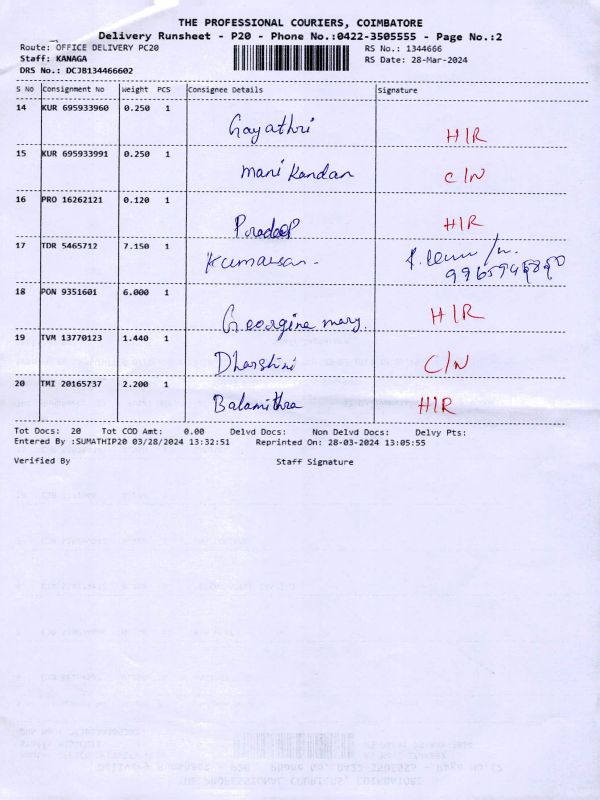 THE PROFESSIONAL COURIERS, COIMBATORE
Delivery Runsheet - P20 - Phone No.:0422-3505555 - Page No.:2
Route: OFFICE DELIVERY PC20 RS No.: 1344666
Staff: KANAGA RS Date: 28-Mar-2024
DRS No.: DCJB134466602
S No Consignment No Weight PCS Consignee Details Signature
14 KUR 695933960 0.250 1
Gayathri H/R
15 KUR 695933991 0.250 1
Mani Kandan C/N
16 PRO 16262121 0.120 1
Pradeep H/R
17 TDR 5465712 7.150 1
Kumaresan.
18 PON 9351601 6.000 1
Georgina mary. H/R
19 TVM 13770123 1.440 1
Dharshini C/N
20 TMI 20165737 2.200 1
Balamithra H/R
Tot Docs: 20 Tot COD Amt: 0.00 Delvd Docs: Non Delvd Docs: Delvy Pts:
Entered By :SUMATHIP20 03/28/2024 13:32:51 Reprinted On: 28-03-2024 13:05:55
Verified By Staff Signature